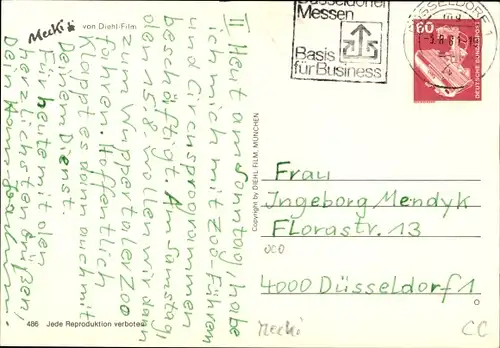 Mecki
von Diehl-Film
Düsseldorfer
Messen
Basis
für Business
DÜSSELDORF 1
60
DEUTSCHE BUNDESPOST
II Heut am Sonntag, habe
ich mich mit Zoo-Führern
und Circusprogrammen
beschäftigt. Am Samstag,
den 15.8 wollen wir dann
zum Wuppertaler Zoo
fahren. Hoffentlich
klappt es dann auch mit
Deinem Dienst.
Für heute mit den
herzlichsten Grüßen,
Dein Hans-Joachim.
Copyright by DIEHL FILM, MÜNCHEN
Frau
Ingeborg Mendyk
Florastr. 13
4000 Düsseldorf 1
486 Jede Reproduktion verboten
Mecki
CC